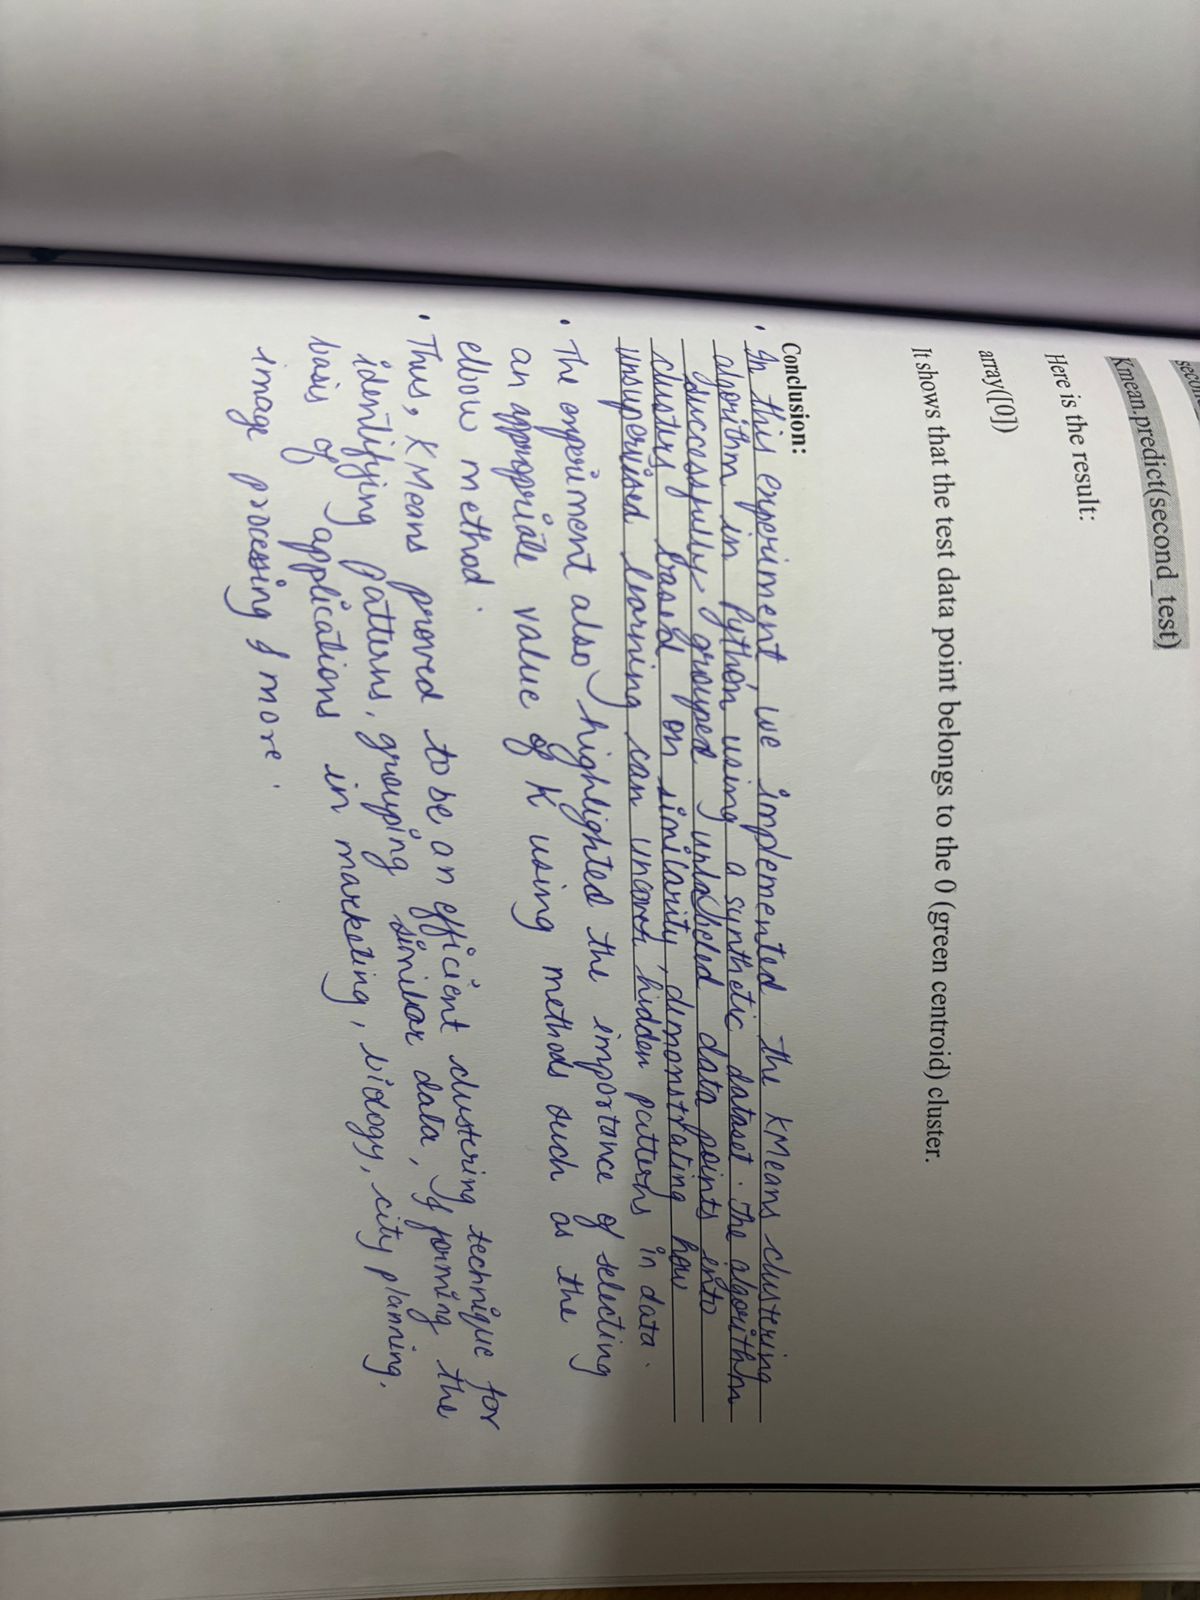 Kmean.predict(second_test)
Here is the result:
array([0])
It shows that the test data point belongs to the 0 (green centroid) cluster.
Conclusion:
• In this experiment, we implemented the KMeans clustering
algorithm in Python using a synthetic dataset. The algorithm
successfully grouped unlabeled data points into
clusters based on similarity, demonstrating how
unsupervised learning can uncover hidden patterns in data.
• The experiment also highlighted the importance of selecting
an appropriate value of K using methods such as the
elbow method.
• Thus, KMeans proved to be an efficient clustering technique for
identifying patterns, grouping similar data, & forming the
basis of applications in marketing, biology, city planning,
image processing & more.